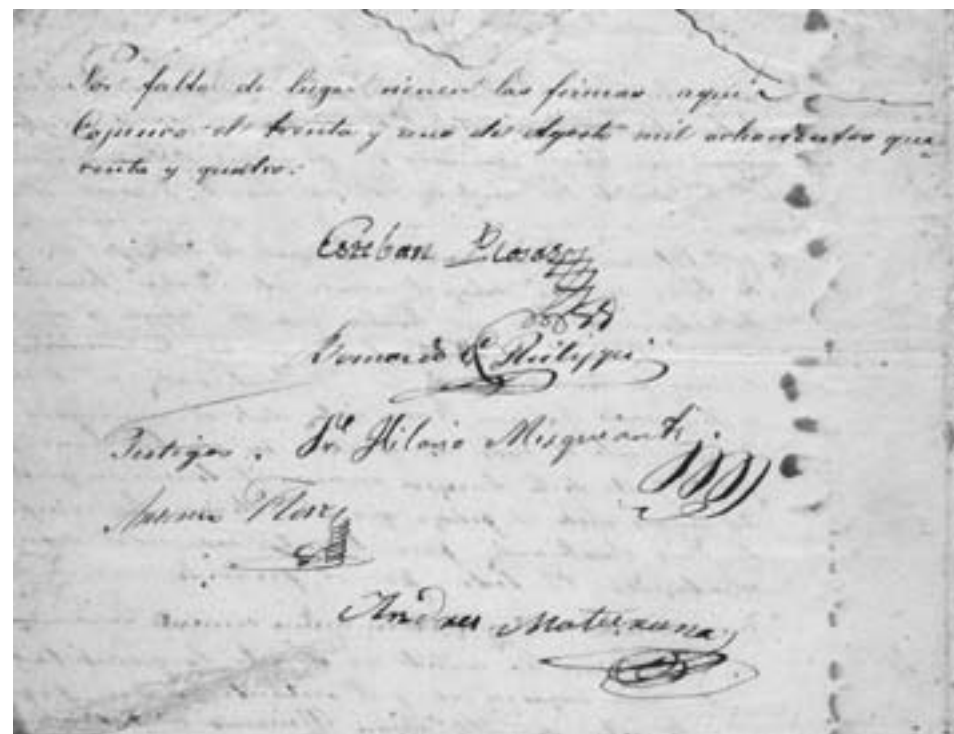 Por falta de lugar vienen las firmas aqui
Cajunco el treinta y uno de Agosto mil ochocientos qua-
renta y quatro.
Esteban
Bernardo E Philippi
Testigos. Jn Hilario
Antonio Flores
Andres Maturana